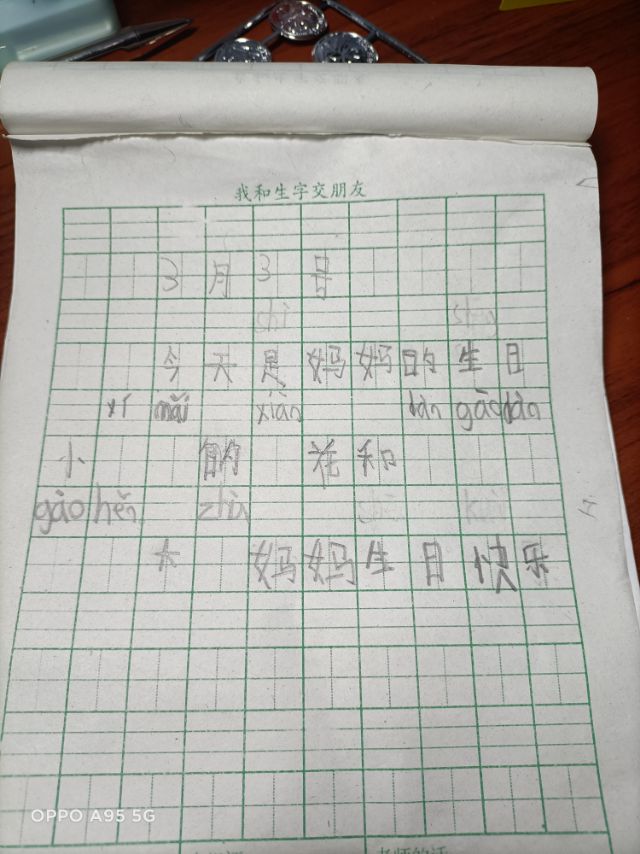 我和生字交朋友
3月3号
shì
今天是妈妈的生日
mǎi xiān dàn gāo dàn
小 的 花和
gāo hěn zhù kuài
大 妈妈生日快乐
OPPO A95 5G
老师的话